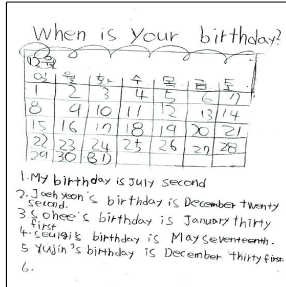 When is your birthday?
12월
일 월 화 수 목 금 토
1 2 3 4 5 6 7
8 9 10 11 12 13 14
15 16 17 18 19 20 21
22 23 24 25 26 27 28
29 30 31
1. My birthday is July second
2. Jaehyeon's birthday is December twenty
second.
3 Sohee's birthday is January thirty
first
4. seulgi's birthday is May seventeenth.
5 Yujin's birthday is December thirty first.
6.